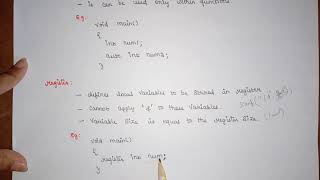 - is can be used only within functions.
Eg:
void main()
{
int num;
auto int num;
}
Register:
- defines local variables to be stored in register
- Cannot apply '&' to these variables.
- Variable size is equal to the register size.
Eg:
void main()
{
register int num;
}